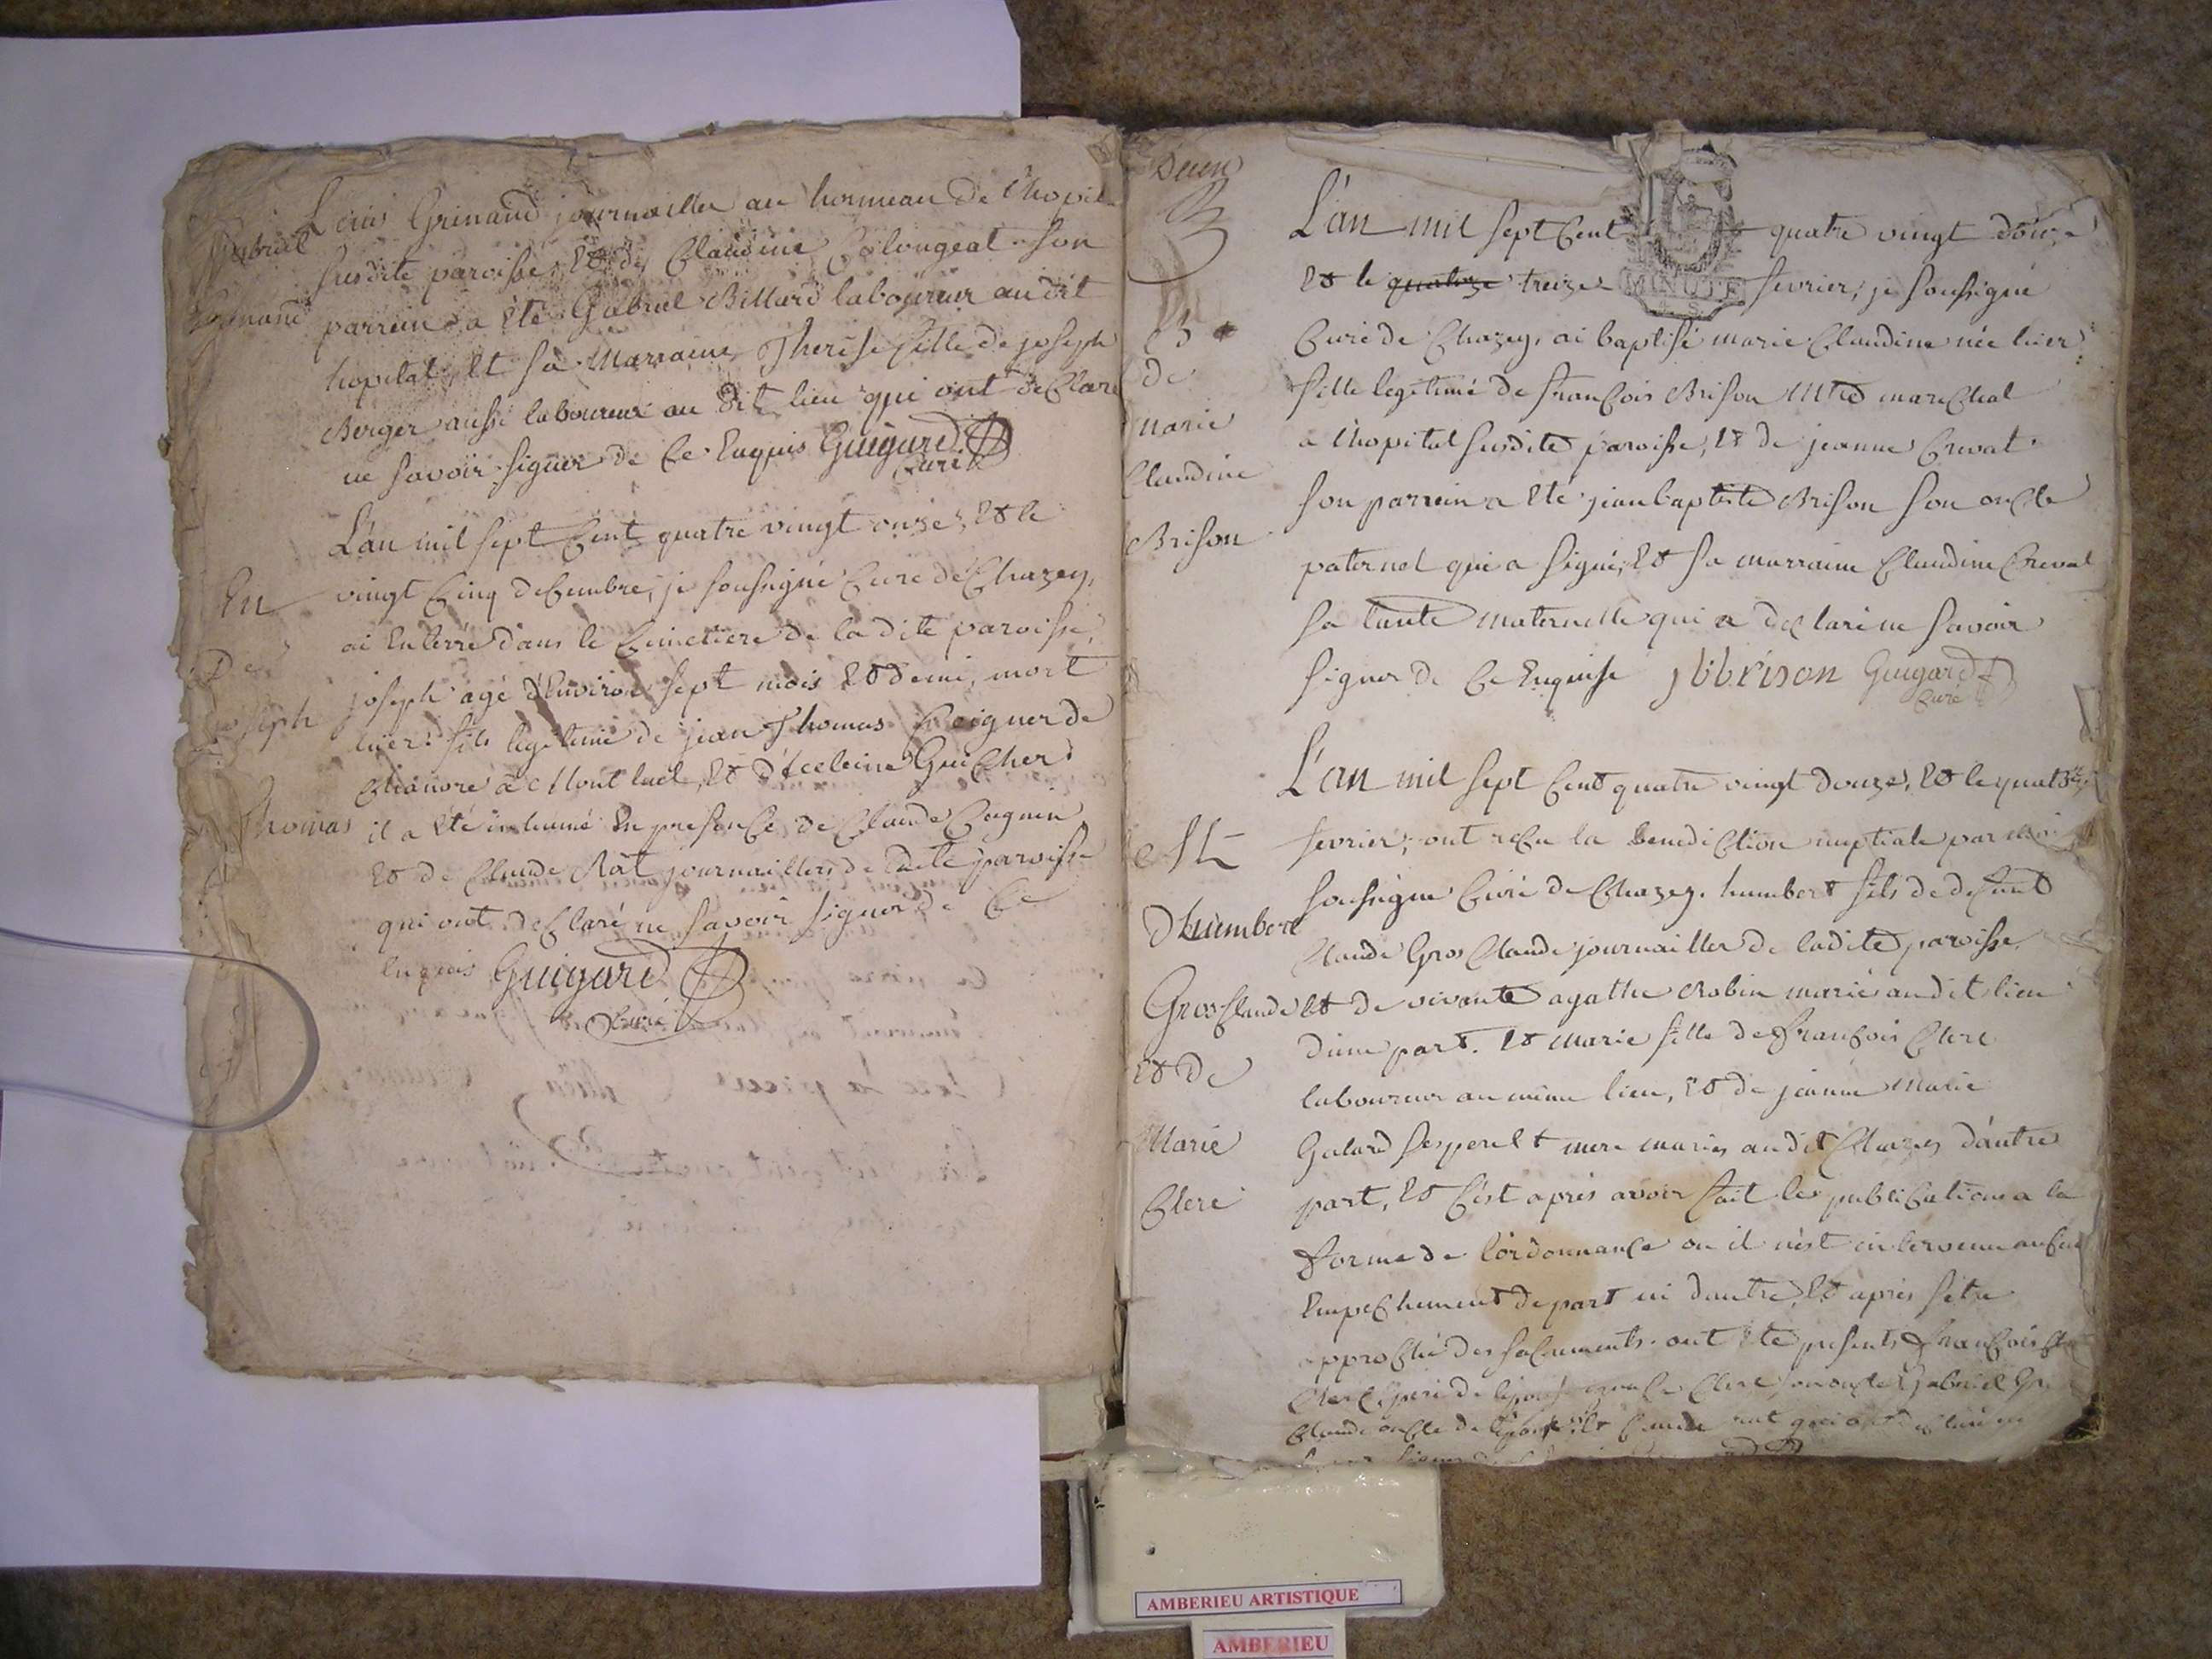 Gabriel
Louis Grinand journailler au hormeau de l'hopital
susdite paroisse, et de Claudine Colongeat. son
parrein a été Gabriel Billard laboureur audit
hopital, et sa Marraine Therese fille de joseph
Berger aussi laboureur au dit lieu qui ont declare
ne savoir signer de ce enquis Guigard
Curé
L'an mil sept Cent quatre vingt onze, et le
En
vingt Cinq decembre, je soussigné Curé de Chazey,
ai enterré dans le Cimetiere de la dite paroisse,
De
joseph agé d'environ sept mois et demi, mort
joseph
hier fils legitime de jean Thomas peigneur de
Chanvre à Montluel, et d'
Thomas
il a été inhumé en presence, de Claude Cognin
et de Claude Rat journailliers de ladite paroisse
qui ont declaré ne savoir signer de Ce
enquis Guigard
Curé
Deux
L'an mil sept Cent quatre vingt douze
MINUTE
et le quatorze treize fevrier, je soussigné
B
Curé de Chazey, ai baptisé marie Claudine née hier
de
fille legitime de francois Brison Mtre marechal
marie
a l'hopital susdite paroisse, et de jeanne Crevat.
Claudine
son parrein a été jean baptiste Brison son oncle
Brison
paternel qui a signé, et sa marraine Claudine Crevat
sa tante maternelle qui a declaré ne savoir
signer de Ce enquise jbbrison Guigard
Curé
L'an mil sept Cent quatre vingt douze, et le quatorze
fevrier, ont reçu la benediction nuptiale par moi
soussigné Curé de Chazey. humbert fils de defunt
D'humbert
Claude Gros Claude journailler de ladite paroisse
Gros Claude
et de vivante agathe Robin mariés audit lieu
d'une part. et marie fille de francois Clerc
et De
laboureur au même lieu, et de jeanne marie
Marie
Galard ses pere et mere mariés audit Chazey d'autre
Clerc
part, et C'est après avoir fait les publications a la
forme de l'ordonnance ou il n'est intervenu aucun
empechement de part ni d'autre, et après s'etre
approché des sacrements. ont été presents francois
Clerc, pere de l'epouse Clerc son oncle, Gabriel
Claude oncle de l'epoux, et Claude rat qui ont declaré ne
AMBERIEU ARTISTIQUE
AMBERIEU